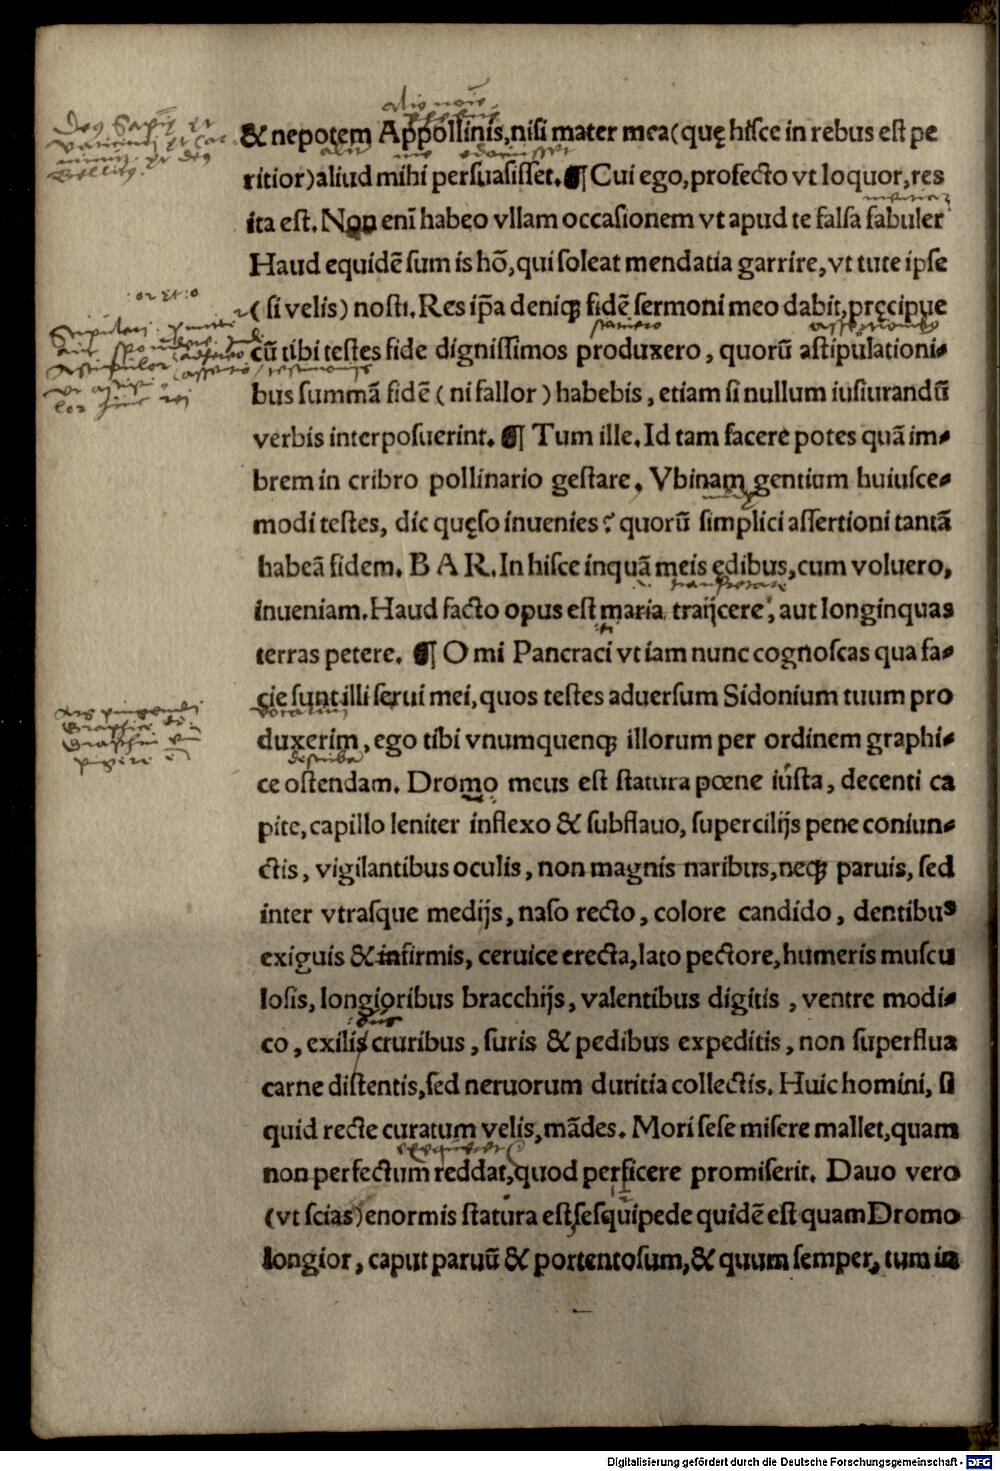 & nepotem Appollinis, nisi mater mea (quę hisce in rebus est pe
ritior) aliud mihi persuasisset. ¶ Cui ego, profecto vt loquor, res
ita est. Non enī habeo vllam occasionem vt apud te falsa fabuler
Haud equidē sum is hō, qui soleat mendatia garrire, vt tute ipse
(si velis) nosti. Res ip̄a deniqꝫ fidē sermoni meo dabit, pręcipue
cū tibi testes fide dignissimos produxero, quorū astipulationi⸗
bus summā fidē (ni fallor) habebis, etiam si nullum iusiurandū
verbis interposuerint. ¶ Tum ille. Id tam facere potes quā im⸗
brem in cribro pollinario gestare. Vbinam gentium huiusce⸗
modi testes, dic quęso inuenies? quorū simplici assertioni tantā
habeā fidem. B A R. In hisce inquā meis ędibus, cum voluero,
inueniam. Haud facto opus est maria traijcere, aut longinquas
terras petere. ¶ O mi Pancraci vt iam nunc cognoscas qua fa⸗
cie sunt illi serui mei, quos testes aduersum Sidonium tuum pro
duxerim, ego tibi vnumquenqꝫ illorum per ordinem graphi⸗
ce ostendam. Dromo meus est statura pœne iusta, decenti ca
pite, capillo leniter inflexo & subflauo, supercilijs pene coniun⸗
ctis, vigilantibus oculis, non magnis naribus, neqꝫ paruis, sed
inter vtrasque medijs, naso recto, colore candido, dentibus
exiguis & infirmis, ceruice erecta, lato pectore, humeris muscu
losis, longioribus bracchijs, valentibus digitis, ventre modi⸗
co, exilis cruribus, suris & pedibus expeditis, non superflua
carne distentis, sed neruorum duritia collectis. Huic homini, si
quid recte curatum velis, mādes. Mori sese misere mallet, quam
non perfectum reddat, quod perficere promiserit. Dauo vero
(vt scias) enormis statura est, sesquipede quidē est quam Dromo
longior, caput paruū & portentosum, & quum semper, tum in
Digitalisierung gefördert durch die Deutsche Forschungsgemeinschaft - DFG